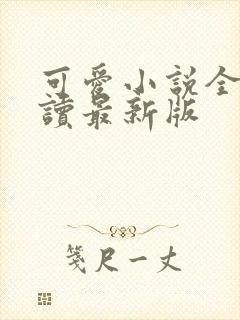 可愛小說全
讀最新版
箋尺一丈